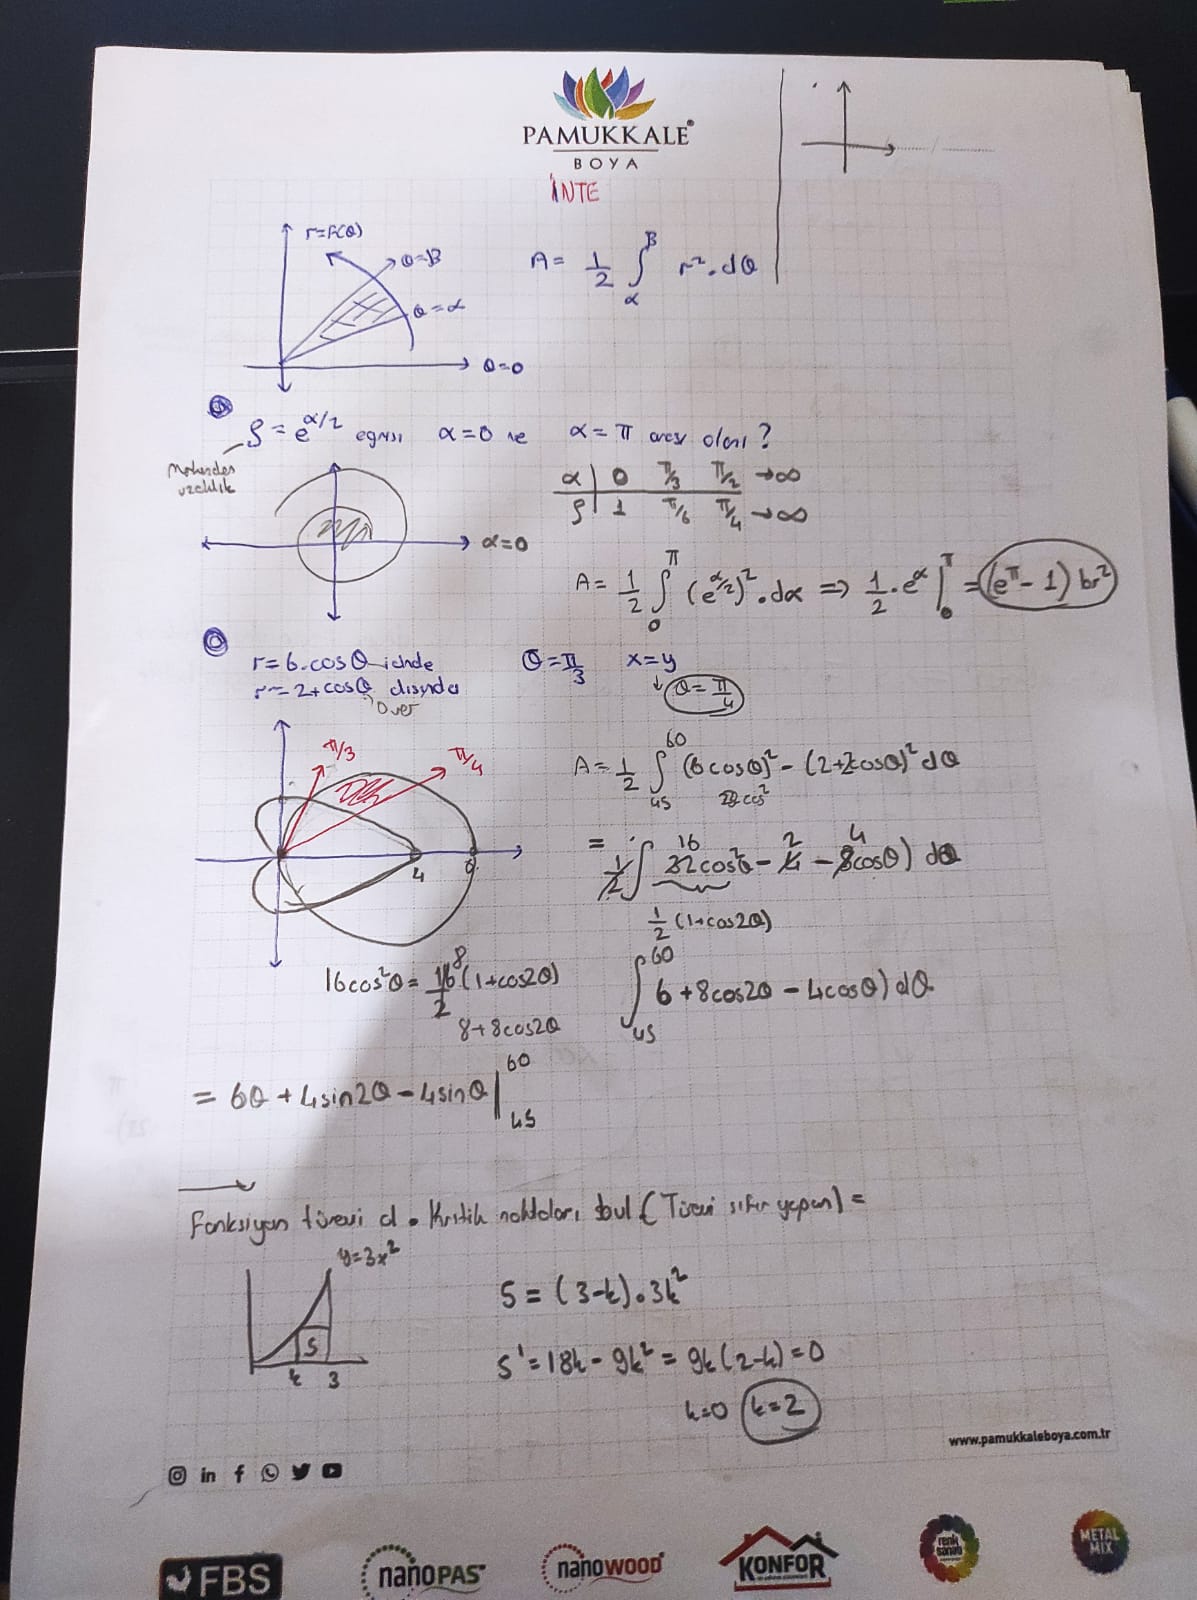 PAMUKKALE®
BOYA
İNTE
r=f(θ)
θ=β
θ=α
θ=0
A= 1/2 ∫ α β r². dθ
ρ = e^α/2 egrisi α=0 ve α=π arası alanı?
Merkezden
uzaklık
α | 0 π/3 π/2 →∞
ρ | 1 π/6 π/4 →∞
α=0
A= 1/2 ∫ 0 π (e^α/2)². dα ⇒ 1/2 . e^α | 0 π = (e^π - 1) br²
r=6.cosθ içinde θ=π/3 x=y
r=2+cosθ dışında ↓ θ=π/4
π/3
π/4
4
6
A= 1/2 ∫ 45 60 (6cosθ)² - (2+2cosθ)² dθ
= 1/2 ∫ 16 32cos²θ - 2 4 - 4 8cosθ) dθ
1/2 (1+cos2θ)
16cos²θ = 16/2 8 (1+cos2θ)
8+8cos2θ
∫ 45 60 6+8cos2θ - 4cosθ) dθ
= 6θ + 4sin2θ - 4sinθ | 45 60
Fonksiyon türevi al . Kritik noktaları bul ( Türevi sıfır yapan) =
y=3x²
S
k 3
S = (3-k).3k²
S' = 18k - 9k² = 9k(2-k) = 0
k=0 k=2
www.pamukkaleboya.com.tr
FBS
nanoPAS®
nanoWOOD®
KONFOR
renk sanatı
METAL MIX